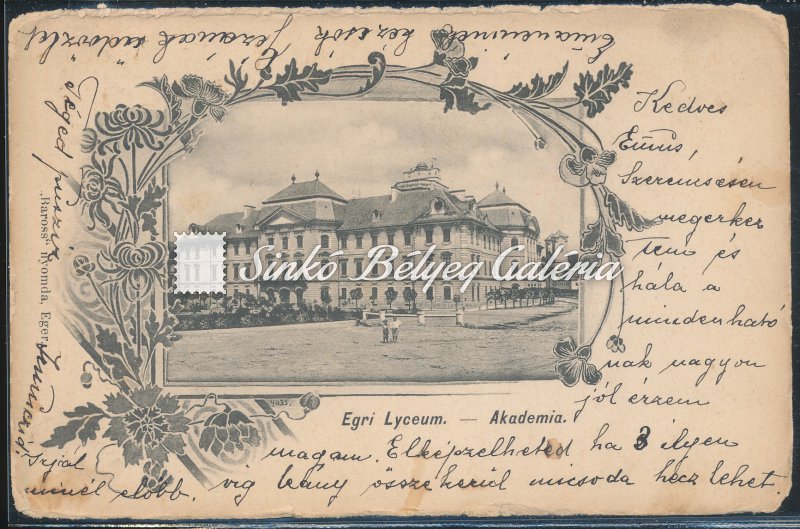 Kedves
Emus,
Szerencsésen
megerkez
tem és
hála a
mindenható
nak nagyon
jól érzem
magam. Elképzelheted ha 3 ilyen
vig leány összekerül micsoda hecz lehet.
Irjál
minél előbb.
Téged puszil
kézcsók Gézának üdvözlet
Egri Lyceum. — Akademia.
4035.
„Baross" nyomda, Eger
Sinkó Bélyeg Galéria